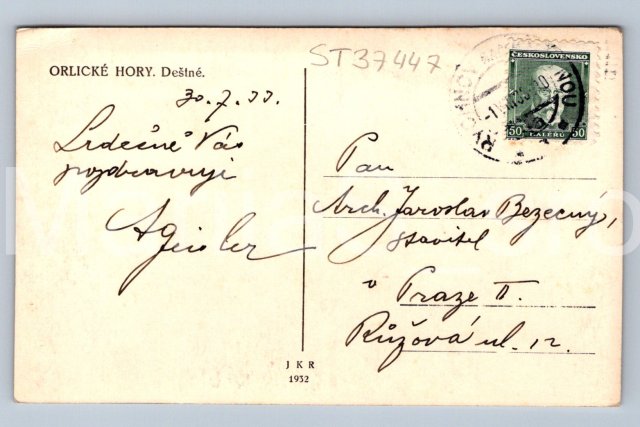 ST37447
ORLICKÉ HORY. Deštné.
ČESKOSLOVENSKO
50 HALÉŘŮ 50
30.7.33.
Srdečně Vás
pozdravuje
Pan
Arch. Jaroslav Bezecný,
stavitel
v Praze II.
Růžová ul. 12.
J K R
1932